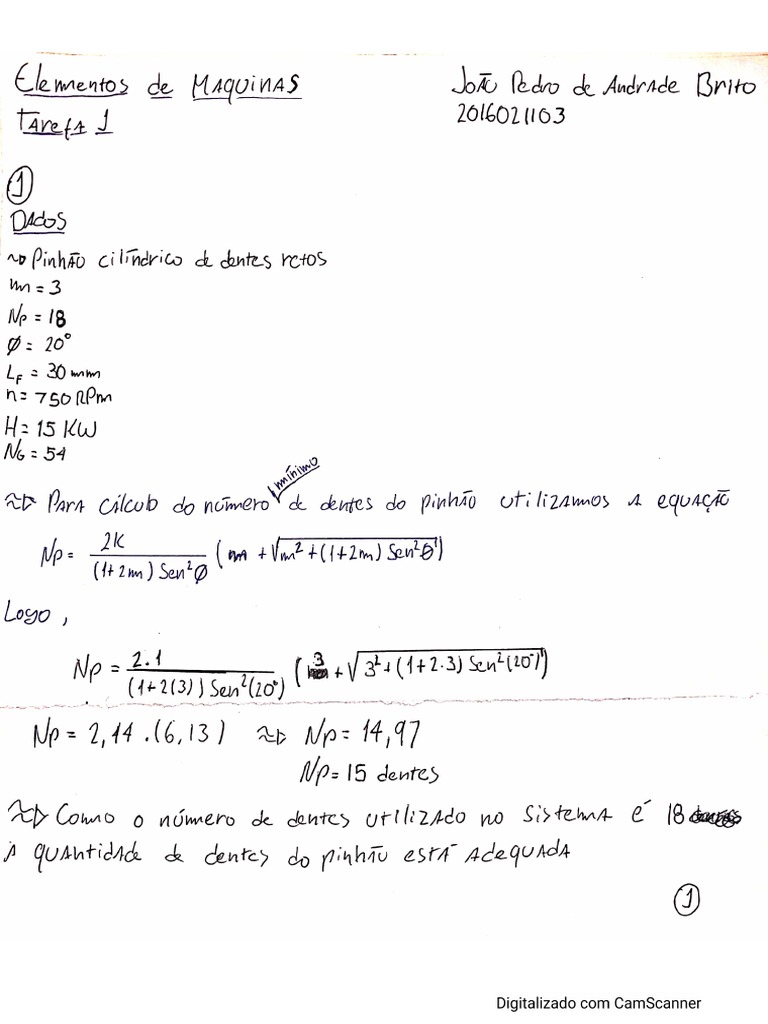 Elementos de MAQUINAS
João Pedro de Andrade Brito
Tarefa 1
2016021103
1
DADOS
~▷ Pinhão cilíndrico de dentes retos
m = 3
Np = 18
Ø = 20°
LF = 30 mm
n = 750 RPm
H = 15 KW
NG = 54
≈▷ Para cálculo do número mínimo de dentes do pinhão utilizamos a equação
Np = 2K / (1+2m) Sen²Ø (m + √m² + (1+2m) Sen²Ø)
Logo,
Np = 2.1 / (1+2(3)) Sen²(20°) (3 + √3² + (1+2.3) Sen²(20°))
Np = 2,14 . (6,13) ≈▷ Np = 14,97
Np = 15 dentes
≈▷ Como o número de dentes utilizado no sistema é 18
a quantidade de dentes do pinhão está adequada
1
Digitalizado com CamScanner